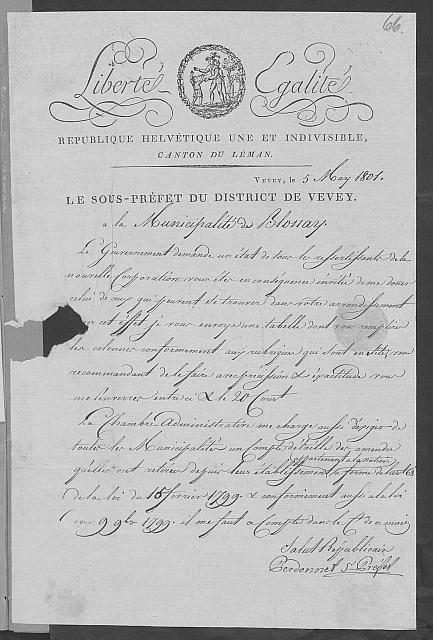 66.
Liberté Egalité
REPUBLIQUE HELVÉTIQUE UNE ET INDIVISIBLE,
CANTON DU LÉMAN.
VEVEY, le 5 May 1801.
LE SOUS-PRÉFET DU DISTRICT DE VEVEY.
a la Municipalité de Blonay.
Le Gouvernement demande un état de tous les ressortissants de la
nouvelle Corporation vous êtes en conséquence invités de me donner
celui de ceux qui peuvent se trouver dans votre arrondissement
pour cet effet je vous envoye une tabelle dont vous remplirés
les colonnes conformement aux rubriques qui sont en tête, vous
recommandant de le faire avec précision & exactitude vous
me l'enverres entre ci & le 20 Court
La Chambre Administrative me charge aussi d'exiger de
toutes les Municipalités un Compte détaillé des amendes
appartenant à la nation
qu'elles ont retirées depuis leur établissement a forme de l'art 63
de la loi du 15 fevrier 1799. & conformément aussi a la loi
du 9 9bre 1799. il me faut ce Compte dans le Ct de ce mois
Salut Républicain
Perdonnet S. Préfet